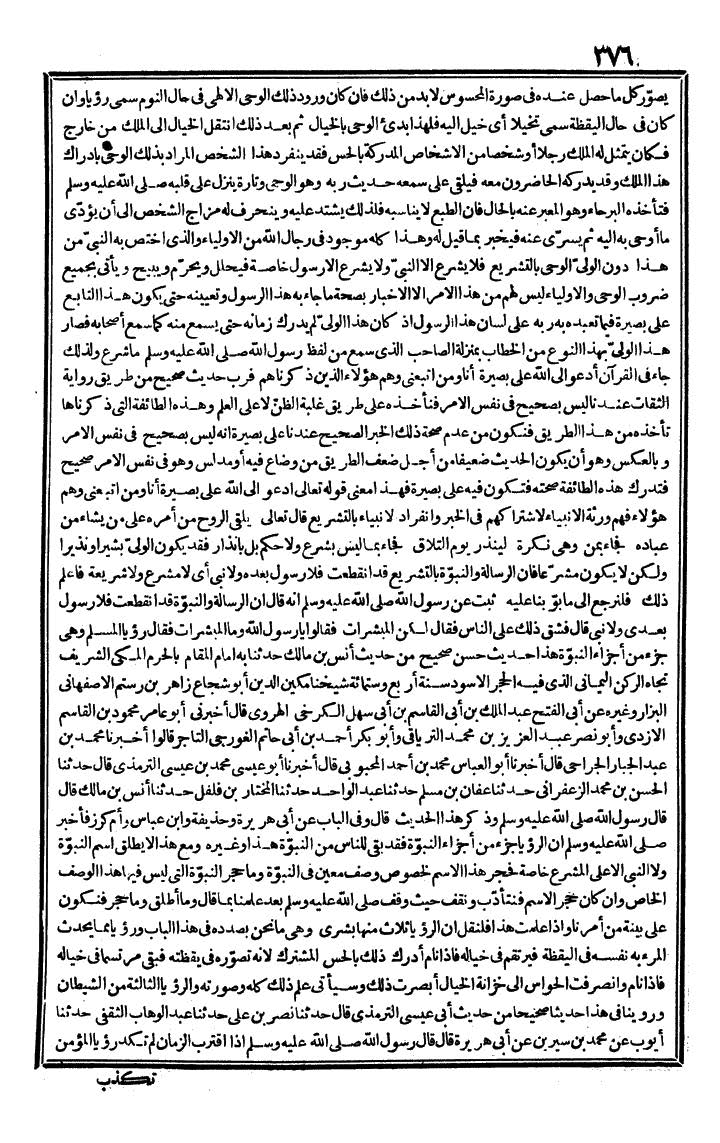 ٣٧٦
يصوّر كل ما حصل عنده فى صورة المحسوس لابد من ذلك فان كان ورود ذلك الوحى الالهى فى حال النوم سمى رؤيا وان
كان فى حال اليقظة سمى تخيلا أى خيل اليه فلهذا بدئ الوحى بالخيال ثم بعد ذلك انتقل الخيال الى الملك من خارج
فكان يتمثل له الملك رجلا أو شخصا من الاشخاص المدركة بالحس فقد ينفرد هذا الشخص المراد بذلك الوحى بادراك
هذا الملك وقد يدركه الحاضرون معه فيلقى على سمعه حديث ربه وهو الوحى وتارة ينزل على قلبه صلى الله عليه وسلم
فتأخذه البرحاء وهو المعبر عنه بالحال فان الطبع لا يناسبه فلذلك يشتد عليه وينحرف له مزاج الشخص الى أن يؤدّى
ما أوحى به اليه ثم يسرّى عنه فيخبر بما قيل له وهذا كله موجود فى رجال الله من الاولياء والذى اختص به النبىّ من
هذا دون الولىّ الوحى بالتشريع فلا يشرع الا النبىّ ولا يشرع الا رسول خاصة فيحلل ويحرّم ويبيح ويأتى بجميع
ضروب الوحى والاولياء ليس لهم من هذا الامر الا الاخبار بصحة ما جاء به هذا الرسول وتعيينه حتى يكون هذا التابع
على بصيرة فيما تعبده به ربه على لسان هذا الرسول اذ كان هذا الولىّ لم يدرك زمانه حتى يسمع منه كما سمع أصحابه فصار
هذا الولىّ بهذا النوع من الخطاب بمنزلة الصاحب الذى سمع من لفظ رسول الله صلى الله عليه وسلم ما شرع ولذلك
جاء فى القرآن أدعو الى الله على بصيرة أنا ومن اتبعنى وهم هؤلاء الذين ذكرناهم فرب حديث صحيح من طريق رواية
الثقات عندنا ليس بصحيح فى نفس الامر فنأخذه على طريق غلبة الظنّ لا على العلم وهذه الطائفة التى ذكرناها
تأخذه من هذا الطريق فنكون من عدم صحة ذلك الخبر الصحيح عندنا على بصيرة انه ليس بصحيح فى نفس الامر
وبالعكس وهو أن يكون الحديث ضعيفا من أجل ضعف الطريق من وضاع فيه أو مدلس وهو فى نفس الامر صحيح
فتدرك هذه الطائفة صحته فتكون فيه على بصيرة فهذا معنى قوله تعالى ادعو الى الله على بصيرة أنا ومن اتبعنى وهم
هؤلاء فهم ورثة الانبياء لاشتراكهم فى الخبر وانفراد الانبياء بالتشريع قال تعالى يلقى الروح من أمره على من يشاء من
عباده فجاء بمن وهى نكرة لينذر يوم التلاق فجاء بما ليس بشرع ولا حكم بل بانذار فقد يكون الولىّ بشيرا ونذيرا
ولكن لا يكون مشرّعا فان الرسالة والنبوّة بالتشريع قد انقطعت فلا رسول بعده ولا نبى أى لا مشرع ولا شريعة فاعلم
ذلك فلنرجع الى ما بوّبنا عليه ثبت عن رسول الله صلى الله عليه وسلم انه قال ان الرسالة والنبوّة قد انقطعت فلا رسول
بعدى ولا نبى قال فشق ذلك على الناس فقال لكن المبشرات فقالوا يا رسول الله وما المبشرات فقال رؤيا المسلم وهى
جزء من أجزاء النبوّة هذا حديث حسن صحيح من حديث أنس بن مالك حدثنا به امام المقام بالحرم المكى الشريف
تجاه الركن اليمانى الذى فيه الحجر الاسود سنة أربع وستمائة شيخنا مكين الدين أبو شجاع زاهر بن رستم الاصفهانى
البزار وغيره عن أبى الفتح عبد الملك بن أبى القاسم بن أبى سهل الكرخى الهروى قال أخبرنى أبو عامر محمود بن القاسم
الازدى وأبو نصر عبد العزيز بن محمد الترياقى وأبو بكر أحمد بن أبى حاتم الغورجى التاجر قالوا أخبرنا محمد بن
عبد الجبار الجراحى قال أخبرنا أبو العباس محمد بن أحمد المحبوبى قال أخبرنا أبو عيسى محمد بن عيسى الترمذى قال حدثنا
الحسن بن محمد الزعفرانى حدثنا عفان بن مسلم حدثنا عبد الواحد حدثنا المختار بن فلفل حدثنا أنس بن مالك قال
قال رسول الله صلى الله عليه وسلم وذكر هذا الحديث قال وفى الباب عن أبى هريرة وحذيفة وابن عباس وأم كرز فأخبر
صلى الله عليه وسلم ان الرؤيا جزء من أجزاء النبوّة فقد بقى للناس من النبوّة هذا وغيره ومع هذا لا يطلق اسم النبوّة
ولا النبى الا على المشرع خاصة فحجر هذا الاسم لخصوص وصف معين فى النبوّة وما حجر النبوّة التى ليس فيها هذا الوصف
الخاص وان كان حجر الاسم فنتأدّب ونقف حيث وقف صلى الله عليه وسلم بعد علمنا بما قال وما أطلق وما حجر فنكون
على بينة من أمرنا واذا علمت هذا فلنقل ان الرؤيا ثلاث منها بشرى وهى ما نحن بصدده فى هذا الباب ورؤيا مما يحدث
المرء به نفسه فى اليقظة فيرتقم فى خياله فاذا نام أدرك ذلك بالحس المشترك لانه تصوّره فى يقظته فبقى مرتسما فى خياله
فاذا نام وانصرفت الحواس الى خزانة الخيال أبصرت ذلك وسيأتى علم ذلك كله وصورته والرؤيا الثالثة من الشيطان
وروينا فى هذا حديثا صحيحا من حديث أبى عيسى الترمذى قال حدثنا نصر بن على حدثنا عبد الوهاب الثقفى حدثنا
أيوب عن محمد بن سيرين عن أبى هريرة قال قال رسول الله صلى الله عليه وسلم اذا اقترب الزمان لم تكد رؤيا المؤمن
تكذب